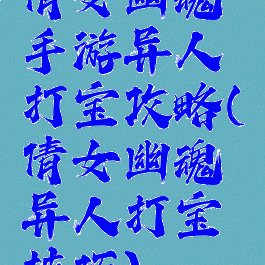 倩女幽魂
手游异人
打宝攻略(
倩女幽魂
异人打宝
技巧)